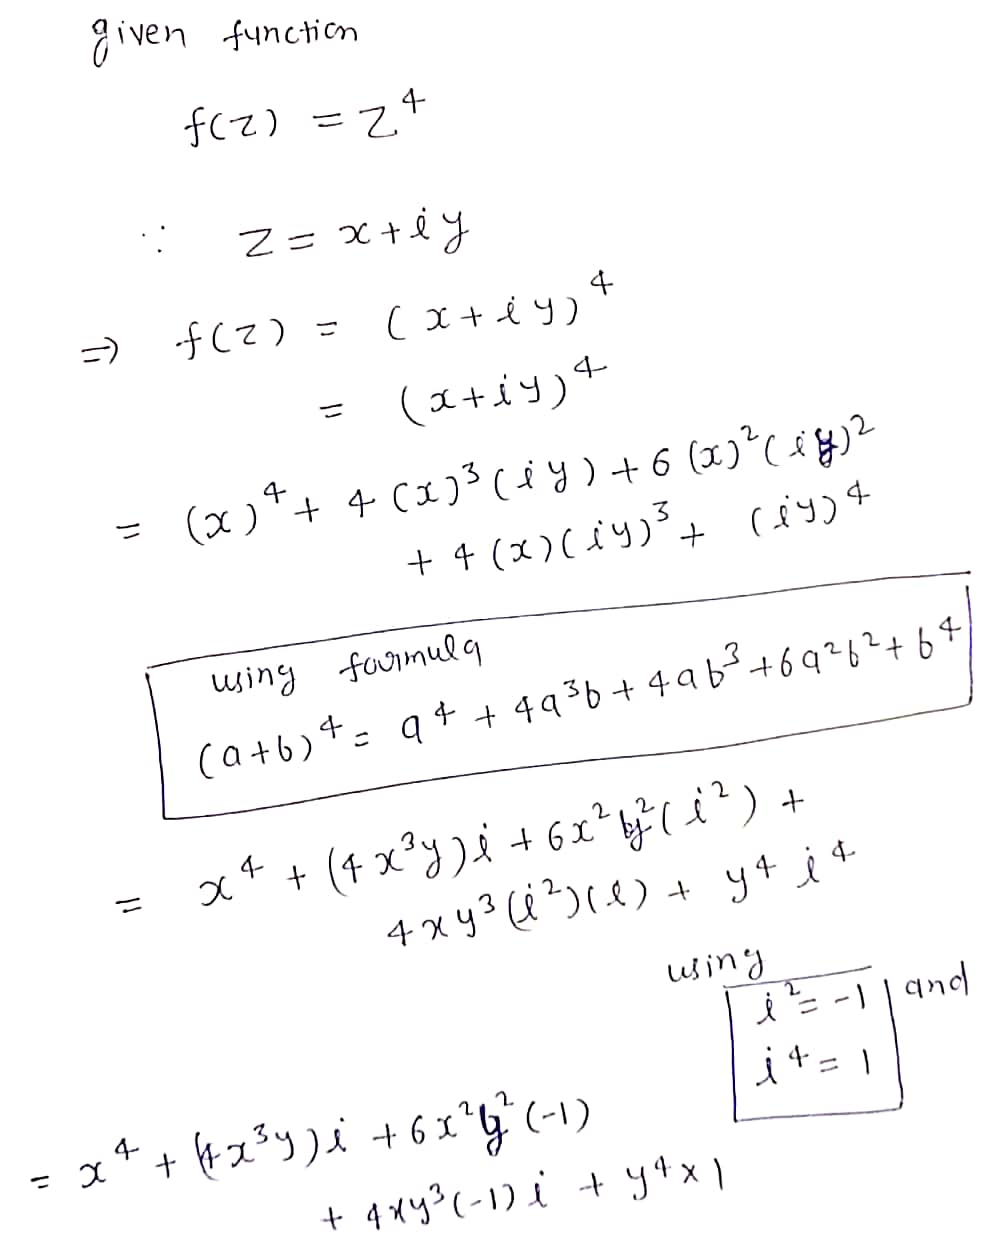 given function
f(z) = z⁴
∵ z = x + iy
⇒ f(z) = (x + iy)⁴
= (x + iy)⁴
= (x)⁴ + 4(x)³(iy) + 6(x)²(iy)²
+ 4(x)(iy)³ + (iy)⁴
using formula
(a+b)⁴ = a⁴ + 4a³b + 4ab³ + 6a²b² + b⁴
= x⁴ + (4x³y)i + 6x²y²(i²) +
4xy³(i²)(i) + y⁴ i⁴
using
i² = -1 and
i⁴ = 1
= x⁴ + (4x³y)i + 6x²y²(-1)
+ 4xy³(-1)i + y⁴ × 1